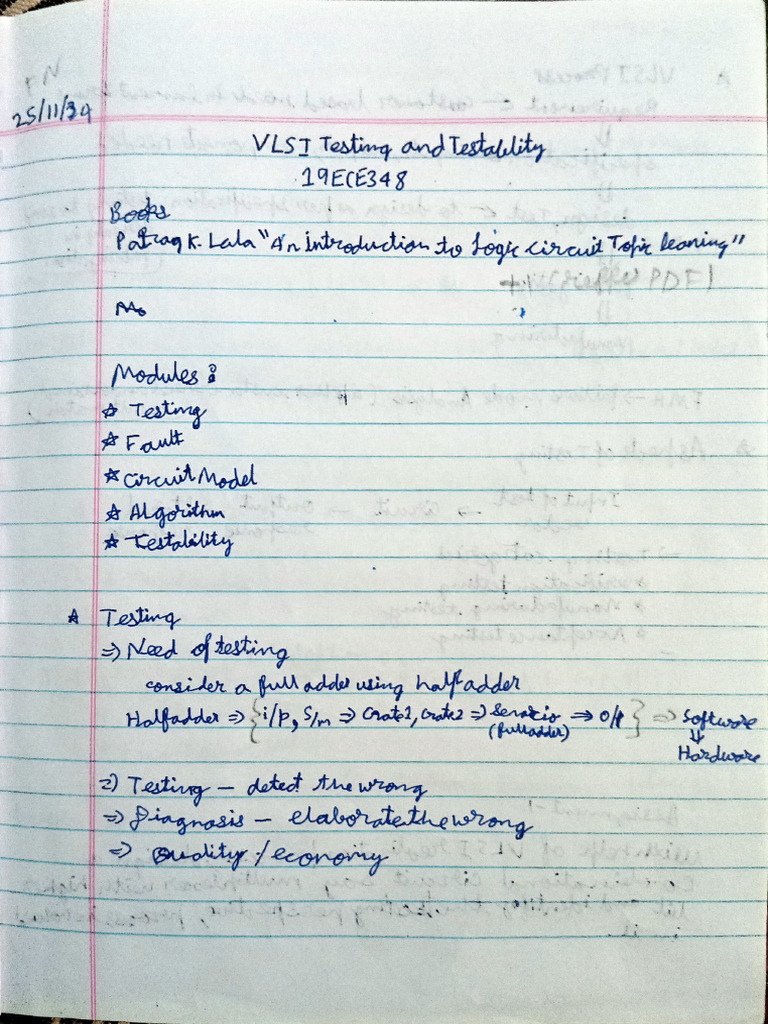 25/11/24
VLSI Testing and Testability
19ECE348
Books
Parag K. Lala "An introduction to Logic circuit Topic leaning"
Modules :
☆ Testing
☆ Fault
☆ Circuit Model
☆ Algorithm
☆ Testability
☆ Testing
⇒ Need of testing
consider a full adder using half adder
Halfadder ⇒ { i/p, S/m ⇒ Gate1, Gate2 ⇒ Senario ⇒ o/p } ⇒ Software
(fulladder) ⇓
Hardware
⇒ Testing – detect the wrong
⇒ Diagnosis – elaborate the wrong
⇒ Quality / economy